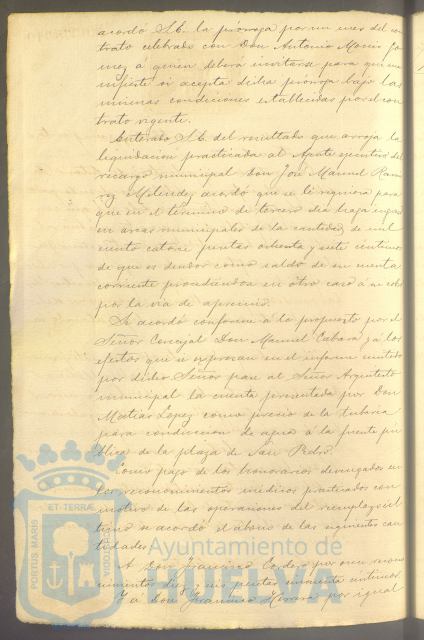 acordó S.E. la prórroga por un mes del con
trato celebrado con Don Antonio
mez, a quien deberá invitarse para que ma
nifieste si acepta dicha prórroga bajo las
mismas condiciones establecidas por el con
trato vigente.
Enterado S.E. del resultado que arroja la
liquidación practicada al Agente ejecutivo del
recargo municipal Don José Manuel Rami
rez Melendez, acordó que se le requiera para
que en el término de tercero dia haga ingreso
en arcas municipales de la cantidad de mil
ciento catorce pesetas ochenta y siete centimos
de que es deudor como saldo de su cuenta
corriente procediendose en otro caso a su cobro
por la via de apremio.
Se acordó conforme á lo propuesto por el
Señor Concejal Don Manuel y á los
efectos que se expresan en el informe emitido
por dicho Señor pase al Señor Arquitecto
municipal la cuenta presentada por Don
Matias Lopez como precio de la tuberia
para conduccion de agua á la fuente pú
blica de la plaza de San Pedro.
Como pago de los honorarios devengados en
los reconocimientos médicos practicados con
motivo de las operaciones del reemplazo úl
timo se acordó el abono de las siguientes can
tidades:
A Don Francisco por once recono
cimientos diez y seis pesetas cincuenta centimos
Y a Don Francisco Herrera por igual
PORTUS MARIS ET TERRÆ
Ayuntamiento de
HUELVA